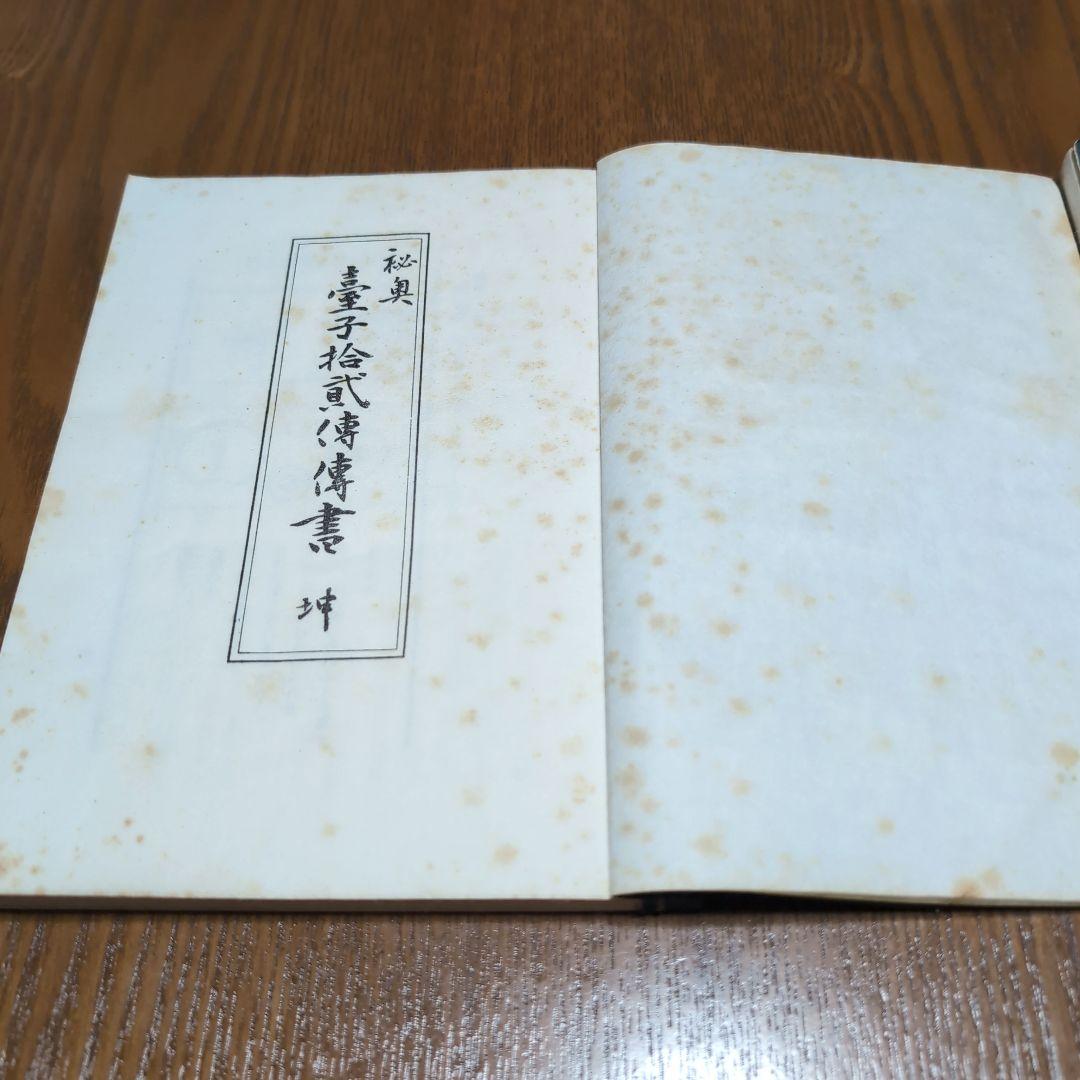 祕奥
臺子拾貳傳傳書
坤